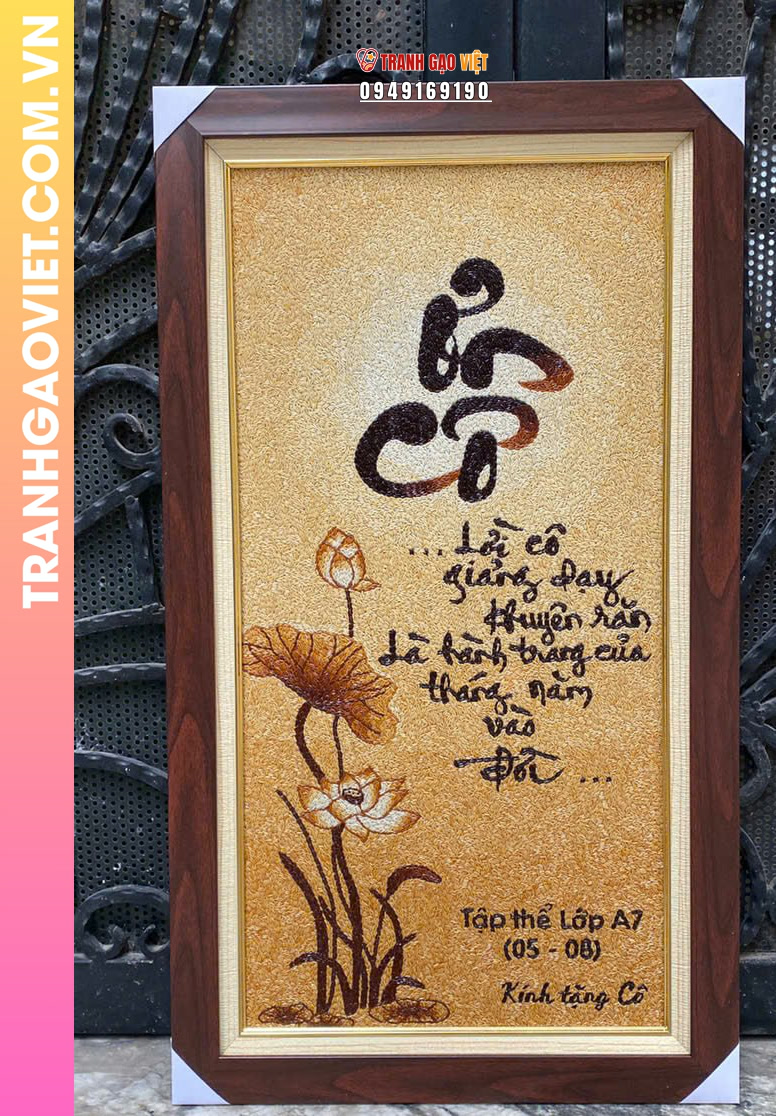 TRANHGAOVIET.COM.VN
TRANH GẠO VIỆT
0949169190
Ơn
Cô
... Lời cô
giảng dạy
khuyên răn
Là hành trang của
tháng năm
vào
Đời ...
Tập thể Lớp A7
(05 - 08)
Kính tặng Cô